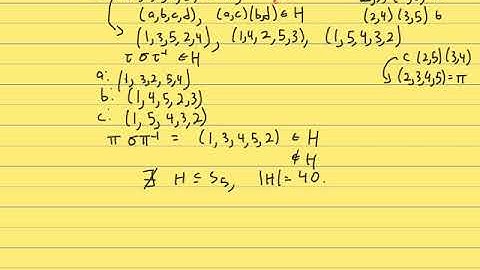 (a,b,c,d), (a,c)(b,d) ∈ H
(2,4)(3,5) b
(1,3,5,2,4), (1,4,2,5,3), (1,5,4,3,2)
τ σ τ⁻¹ ∈ H
c (2,5)(3,4)
(2,3,4,5) = π
a: (1,3,2,5,4)
b: (1,4,5,2,3)
c: (1,5,4,3,2)
π σ π⁻¹ = (1,3,4,5,2) ∈ H
∉ H
∄ H ≤ S₅, |H| = 40.